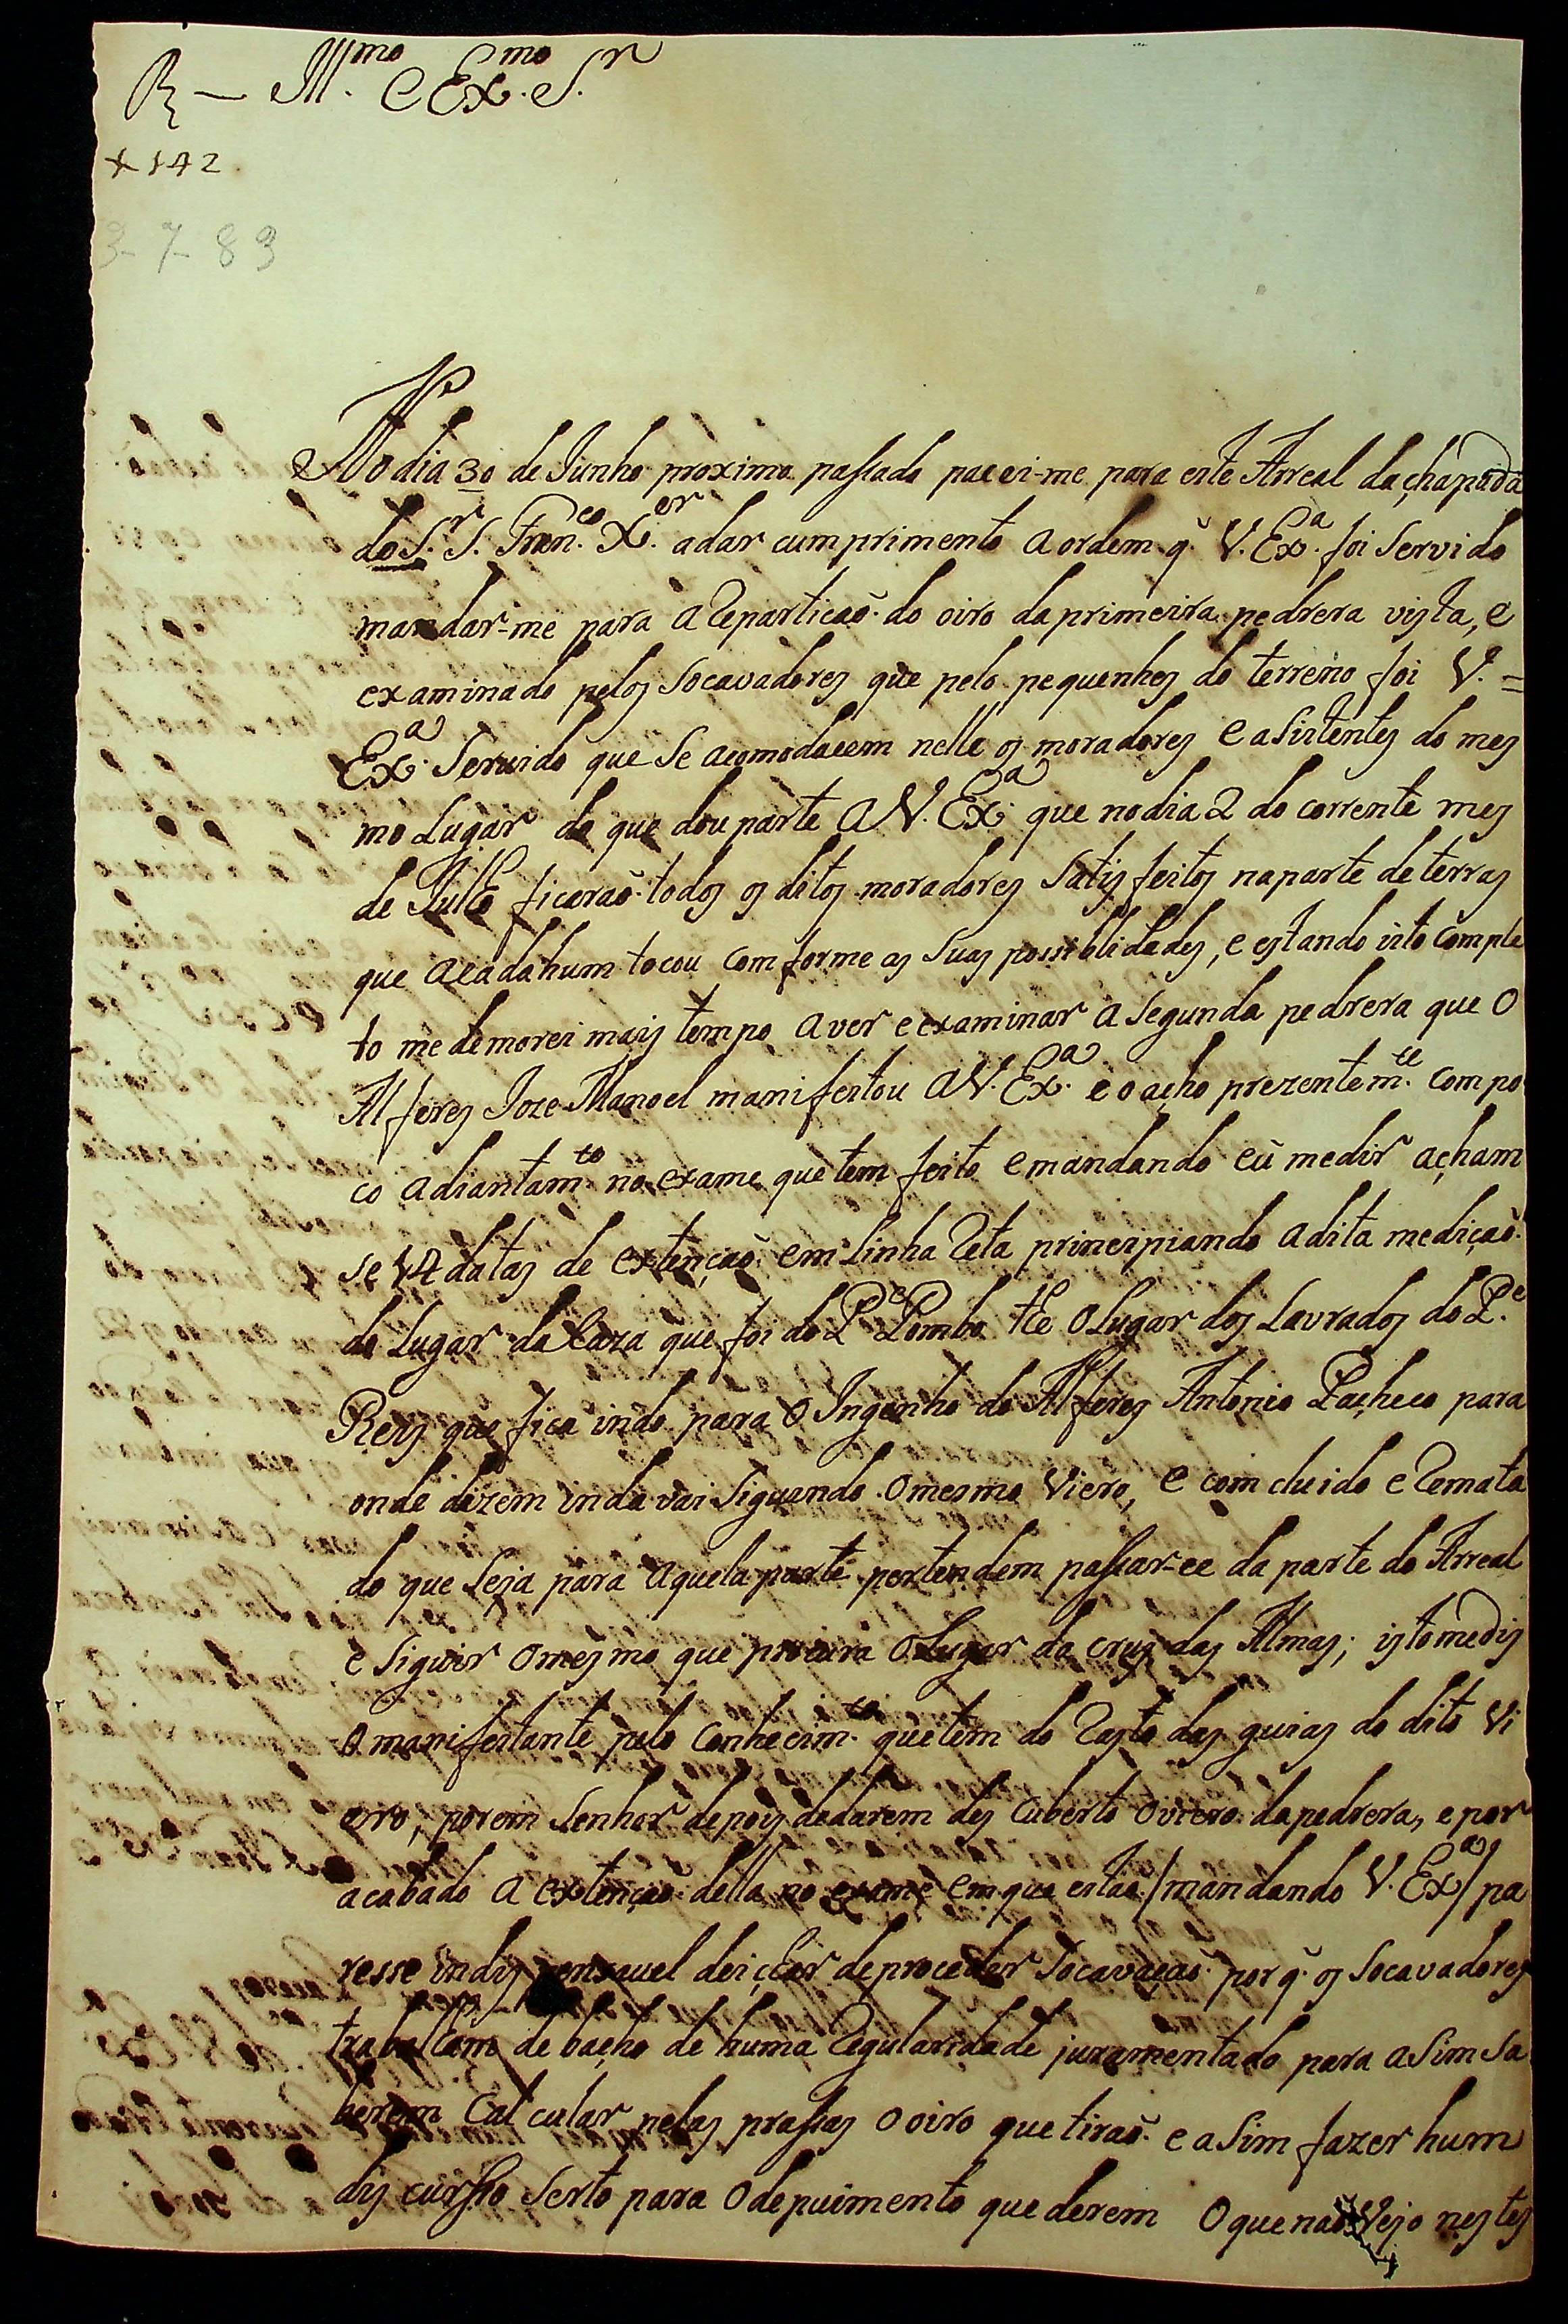 R — Ill.mo e Ex.mo S.r
+ 142
3-7-83
No dia 30 de Junho proximo passado pacei-me para este Arreal da chapada
do S.r S. Fran.co X.er a dar cumprimento a ordem q̃ V. Ex.a foi servido
mandar-me para a reparticaõ do oiro da primeira pedrera vista, e
examinado pelos socavadores que pelo pequenhes do terreno foi V. =
Ex.a servido que se acomodacem nelle os moradores e asistentes do mes
mo Lugar do que dou parte a V. Ex.a que no dia 2 do corrente mes
de Julho ficaraõ todos os ditos moradores satisfeitos na parte de terras
que a cada hum tocou comforme as suas possiblidades, e estando isto comple
to me demorei mais tempo a ver e examinar a segunda pedrera que o
Alferes Joze Manoel manifestou a V. Ex.a e o acho prezentem.te com po
co adiantam.to no exame que tem feito e mandando eu medir acham
se 14 datas de extençaõ em linha reta principiando a dita mediçaõ
do Lugar da Caza que foi do P.e Pombo thé o Lugar dos Lavrados do P.e
Reis que fica indo para o Ingenho do Alferes Antonio Pacheco para
onde dizem inda vai siguendo o mesmo viero, e comcluido e remata
do que seja para aquela parte pertendem passar-ce da parte do Arreal
e siguir o mesmo que procura o Lugar da cruz das Almas; isto me dis
o manifestante pelo conhecim.to que tem do rasto das guias do dito vi
eiro, porem senhor depois de darem des cuberto o viero da pedrera, e por
acabado a extençaõ della no exame em que estaõ /mandando V. Ex.a/ pa
resse indispensavel deichar de proceder socavaçaõ por q̃ os socavadores
trabalham de bacho de huma regularidade juramentado para asim sa
berem calcular pelas prassas o oiro que tiraõ e asim fazer hum
discursso serto para o depuimento que derem o que naõ vejo nestes